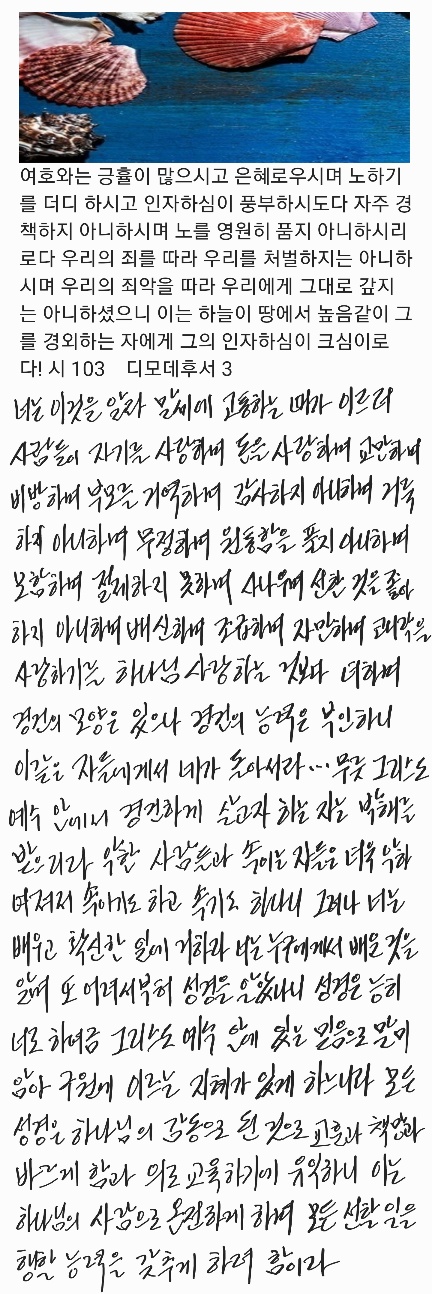 여호와는 긍휼이 많으시고 은혜로우시며 노하기
를 더디 하시고 인자하심이 풍부하시도다 자주 경
책하지 아니하시며 노를 영원히 품지 아니하시리
로다 우리의 죄를 따라 우리를 처벌하지는 아니하
시며 우리의 죄악을 따라 우리에게 그대로 갚지
는 아니하셨으니 이는 하늘이 땅에서 높음같이 그
를 경외하는 자에게 그의 인자하심이 크심이로
다! 시 103 디모데후서 3
너는 이것을 알라 말세에 고통하는 때가 이르러
사람들이 자기를 사랑하며 돈을 사랑하며 교만하며
비방하며 부모를 거역하며 감사하지 아니하며 거룩
하지 아니하며 무정하며 원통함을 풀지 아니하며
모함하며 절제하지 못하며 사나우며 선한 것을 좋아
하지 아니하며 배신하며 조급하며 자만하며 쾌락을
사랑하기를 하나님 사랑하는 것보다 더하며
경건의 모양은 있으나 경건의 능력은 부인하니
이같은 자들에게서 네가 돌아서라... 무릇 그리스도
예수 안에서 경건하게 살고자 하는 자는 박해를
받으리라 악한 사람들과 속이는 자들은 더욱 악하
여져서 속이기도 하고 속기도 하나니 그러나 너는
배우고 확신한 일에 거하라 너는 누구에게서 배운 것을
알며 또 어려서부터 성경을 알았나니 성경은 능히
너로 하여금 그리스도 예수 안에 있는 믿음으로 말미
암아 구원에 이르는 지혜가 있게 하느니라 모든
성경은 하나님의 감동으로 된 것으로 교훈과 책망과
바르게 함과 의로 교육하기에 유익하니 이는
하나님의 사람으로 온전하게 하며 모든 선한 일을
행할 능력을 갖추게 하려 함이라